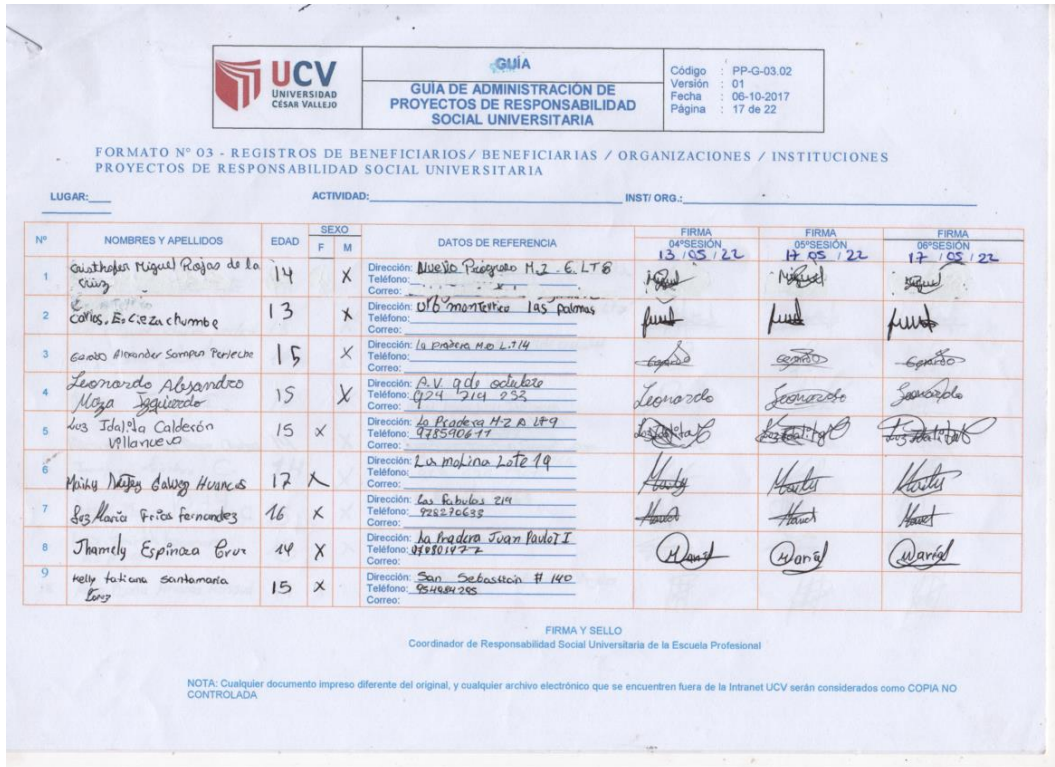 UCV
UNIVERSIDAD
CÉSAR VALLEJO
GUÍA
GUÍA DE ADMINISTRACIÓN DE
PROYECTOS DE RESPONSABILIDAD
SOCIAL UNIVERSITARIA
Código : PP-G-03.02
Versión : 01
Fecha : 06-10-2017
Página : 17 de 22
FORMATO N° 03 - REGISTROS DE BENEFICIARIOS/ BENEFICIARIAS / ORGANIZACIONES / INSTITUCIONES
PROYECTOS DE RESPONSABILIDAD SOCIAL UNIVERSITARIA
LUGAR: ACTIVIDAD: INST/ ORG.:
N° NOMBRES Y APELLIDOS EDAD SEXO F M DATOS DE REFERENCIA
FIRMA 04°SESIÓN 13/05/22
FIRMA 05°SESIÓN 17 05/22
FIRMA 06°SESIÓN 17/05/22
1 Miguel Rojas de la
Cruz
14 X
Dirección: Nuevo M.Z. E. LT8
Teléfono:
Correo:
Miguel Miguel Miguel
2 Carlos. E. Cieza chumbe 13 X
Dirección: Urb monterrico las palmas
Teléfono:
Correo:
3 Alexander 15 X
Dirección: la pradera
Teléfono:
Correo:
Gerardo Gerardo Gerardo
4 Leonardo Alejandro
Moza Izquierdo
15 X
Dirección: A.V. 9 de octubre
Teléfono: 924 214 233
Correo:
Leonardo Leonardo Leonardo
5 Luz Idalita Calderón
Villanueva
15 X
Dirección: La Pradera
Teléfono:
Correo:
6 Galvez 17 X
Dirección: La molina Lote 19
Teléfono:
Correo:
7 Luz María Frias fernandez 16 X
Dirección: Las fabulas 214
Teléfono: 928270633
Correo:
8 Jhamely Espinoza Cruz 14 X
Dirección: La Pradera Juan Paulo II
Teléfono:
Correo:
9 Kelly tatiana Santamaria
15 X
Dirección: San Sebastian # 140
Teléfono: 954984295
Correo:
FIRMA Y SELLO
Coordinador de Responsabilidad Social Universitaria de la Escuela Profesional
NOTA: Cualquier documento impreso diferente del original, y cualquier archivo electrónico que se encuentren fuera de la Intranet UCV serán considerados como COPIA NO
CONTROLADA